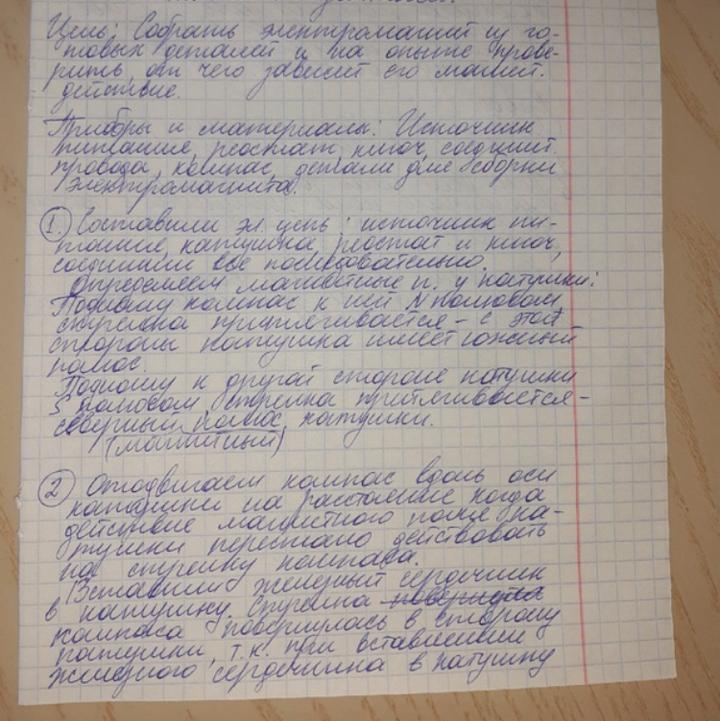 Цель: Собрать электромагнит из го-
товых деталей и на опыте прове-
рить, от чего зависит его магнит.
действие.
Приборы и материалы: Источник
питания, реостат, ключ, соединит.
провода, компас, детали для сборки
электромагнита.
1. Составили эл. цепь: источник пи-
тания, катушка, реостат и ключ,
соединили все последовательно.
Определяем магнитные п. у катушки:
Подношу компас к ней N полюсом
стрелка притягивается – с этой
стороны катушка имеет южный
полюс.
Подношу к другой стороне катушки
S полюсом, стрелка притягивается –
северный полюс катушки.
(магнитный)
2 Отодвигаем компас вдоль оси
катушки на расстояние когда
действие магнитного поля ка-
тушки перестало действовать
на стрелку компаса.
Вставили железный сердечник
в катушку. Стрелка повернула
компаса повернулась в сторону
катушки, т.к. при вставлении
железного сердечника в катушку